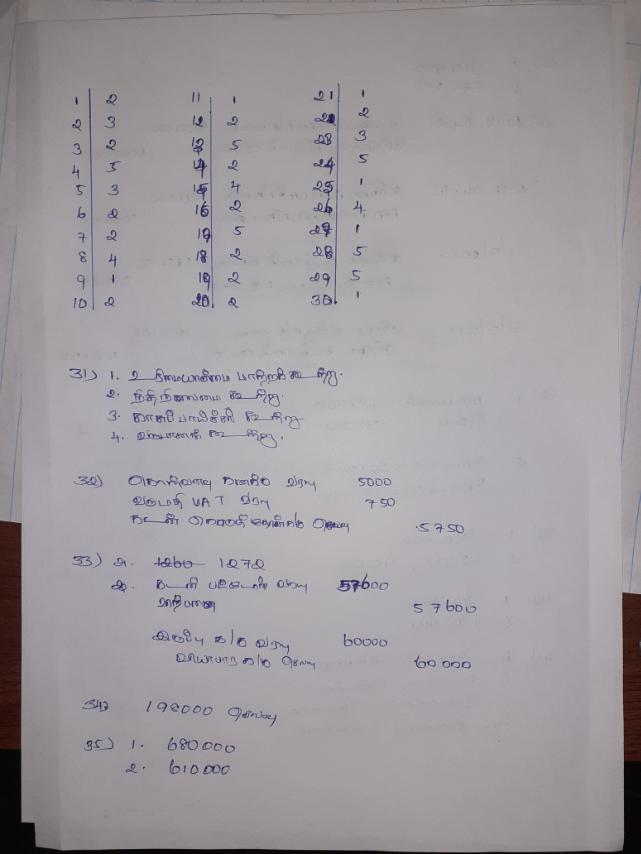 1 2 11 1 21 1
2 3 12 2 22 2
3 2 13 5 23 3
4 5 14 2 24 5
5 3 15 4 25 1
6 2 16 2 26 4
7 2 17 5 27 1
8 4 18 2 28 5
9 1 19 2 29 5
10 2 20 2 30 1
31) 1. உரிமையாண்மை மாற்றக் கூற்று.
2. நிதி நிலைமை கூற்று.
3. காசுப் பாய்ச்சல் கூற்று
4. வருமானக் கூற்று.
32) கணக்கு வரவு 5000
VAT வரவு 750
கடன் செலவு 5750
33) அ. 1260 1272
ஆ. கடன் வரவு 57600
விற்பனை 57600
இருப்பு க/கு வரவு 60000
வியாபார க/கு செலவு 60000
34) 198000 செலவு
35) 1. 680000
2. 610000